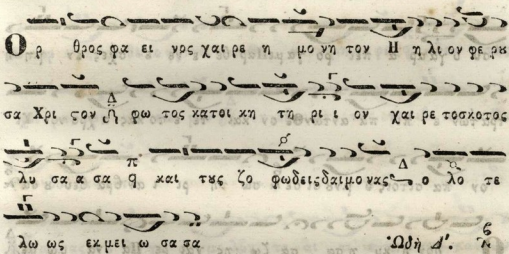 Ορ θρος φα ει νος χαι ρε η μο νη τον Η η λι ον φε ρου
σα Χρι τον Δ φω τος κα τοι κη τη ρι ι ον χαι ρε το σκοτος
λυ σα α σα q και τȣς ζο φωδεις δαι μο νας Δ ο λο τε
λω ως εκ μει ω σα σα Ὠδὴ Δ'.